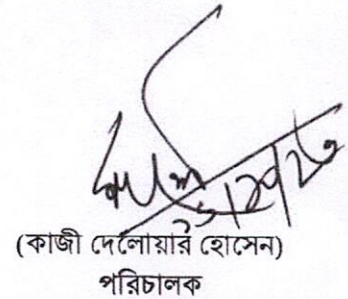 (কাজী দেলোয়ার হোসেন)
পরিচালক